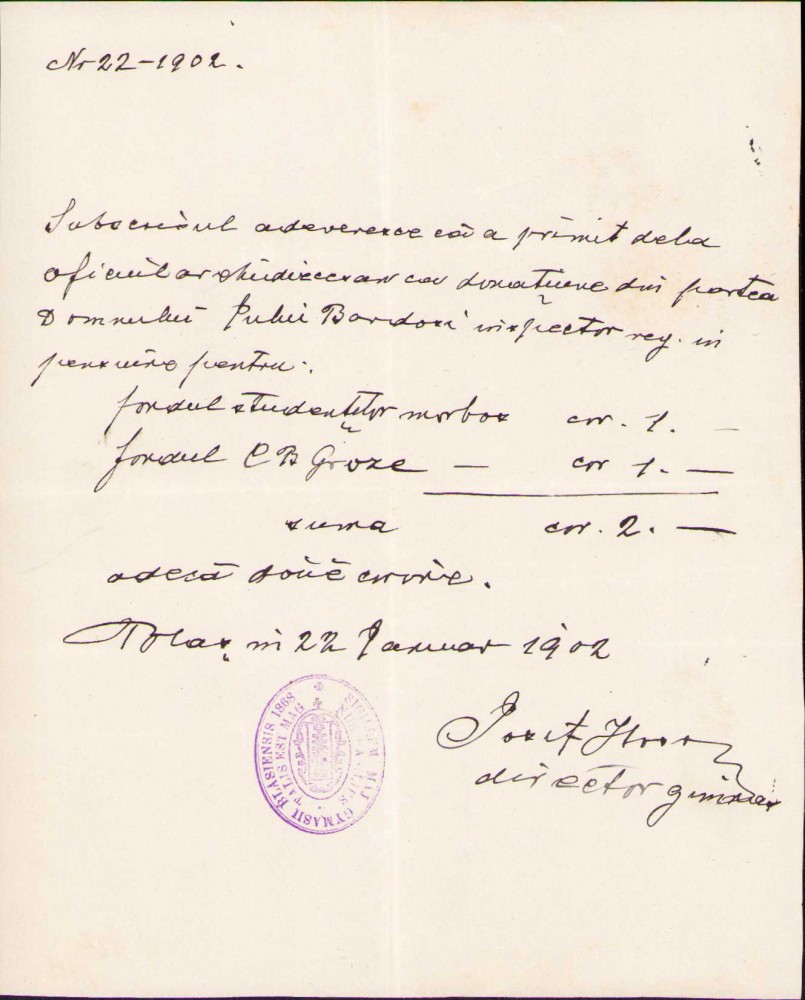 Nr 22-1902.
Subscrisul adeveresce că a primit dela
oficiul archidiecesan ca donațiune din partea
Domnului Iuliu Bardosi inspector reg. in
pensiune pentru:
fondul studenților morbosi cor. 1. —
fondul C B Groze — cor 1. —
suma cor. 2. —
adecă dóuĕ corone.
Blaș, in 22 Januar 1902
Iosif Hossu
director gimnas
SIGILLUM MAJ GYMASII BLASIENSIS 1868
TALIS EST MAG